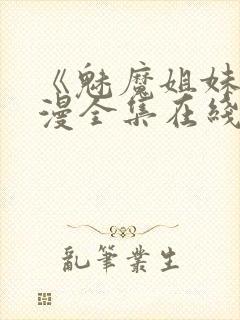 《魅魔姐妹
漫全集在綫
亂筆業生